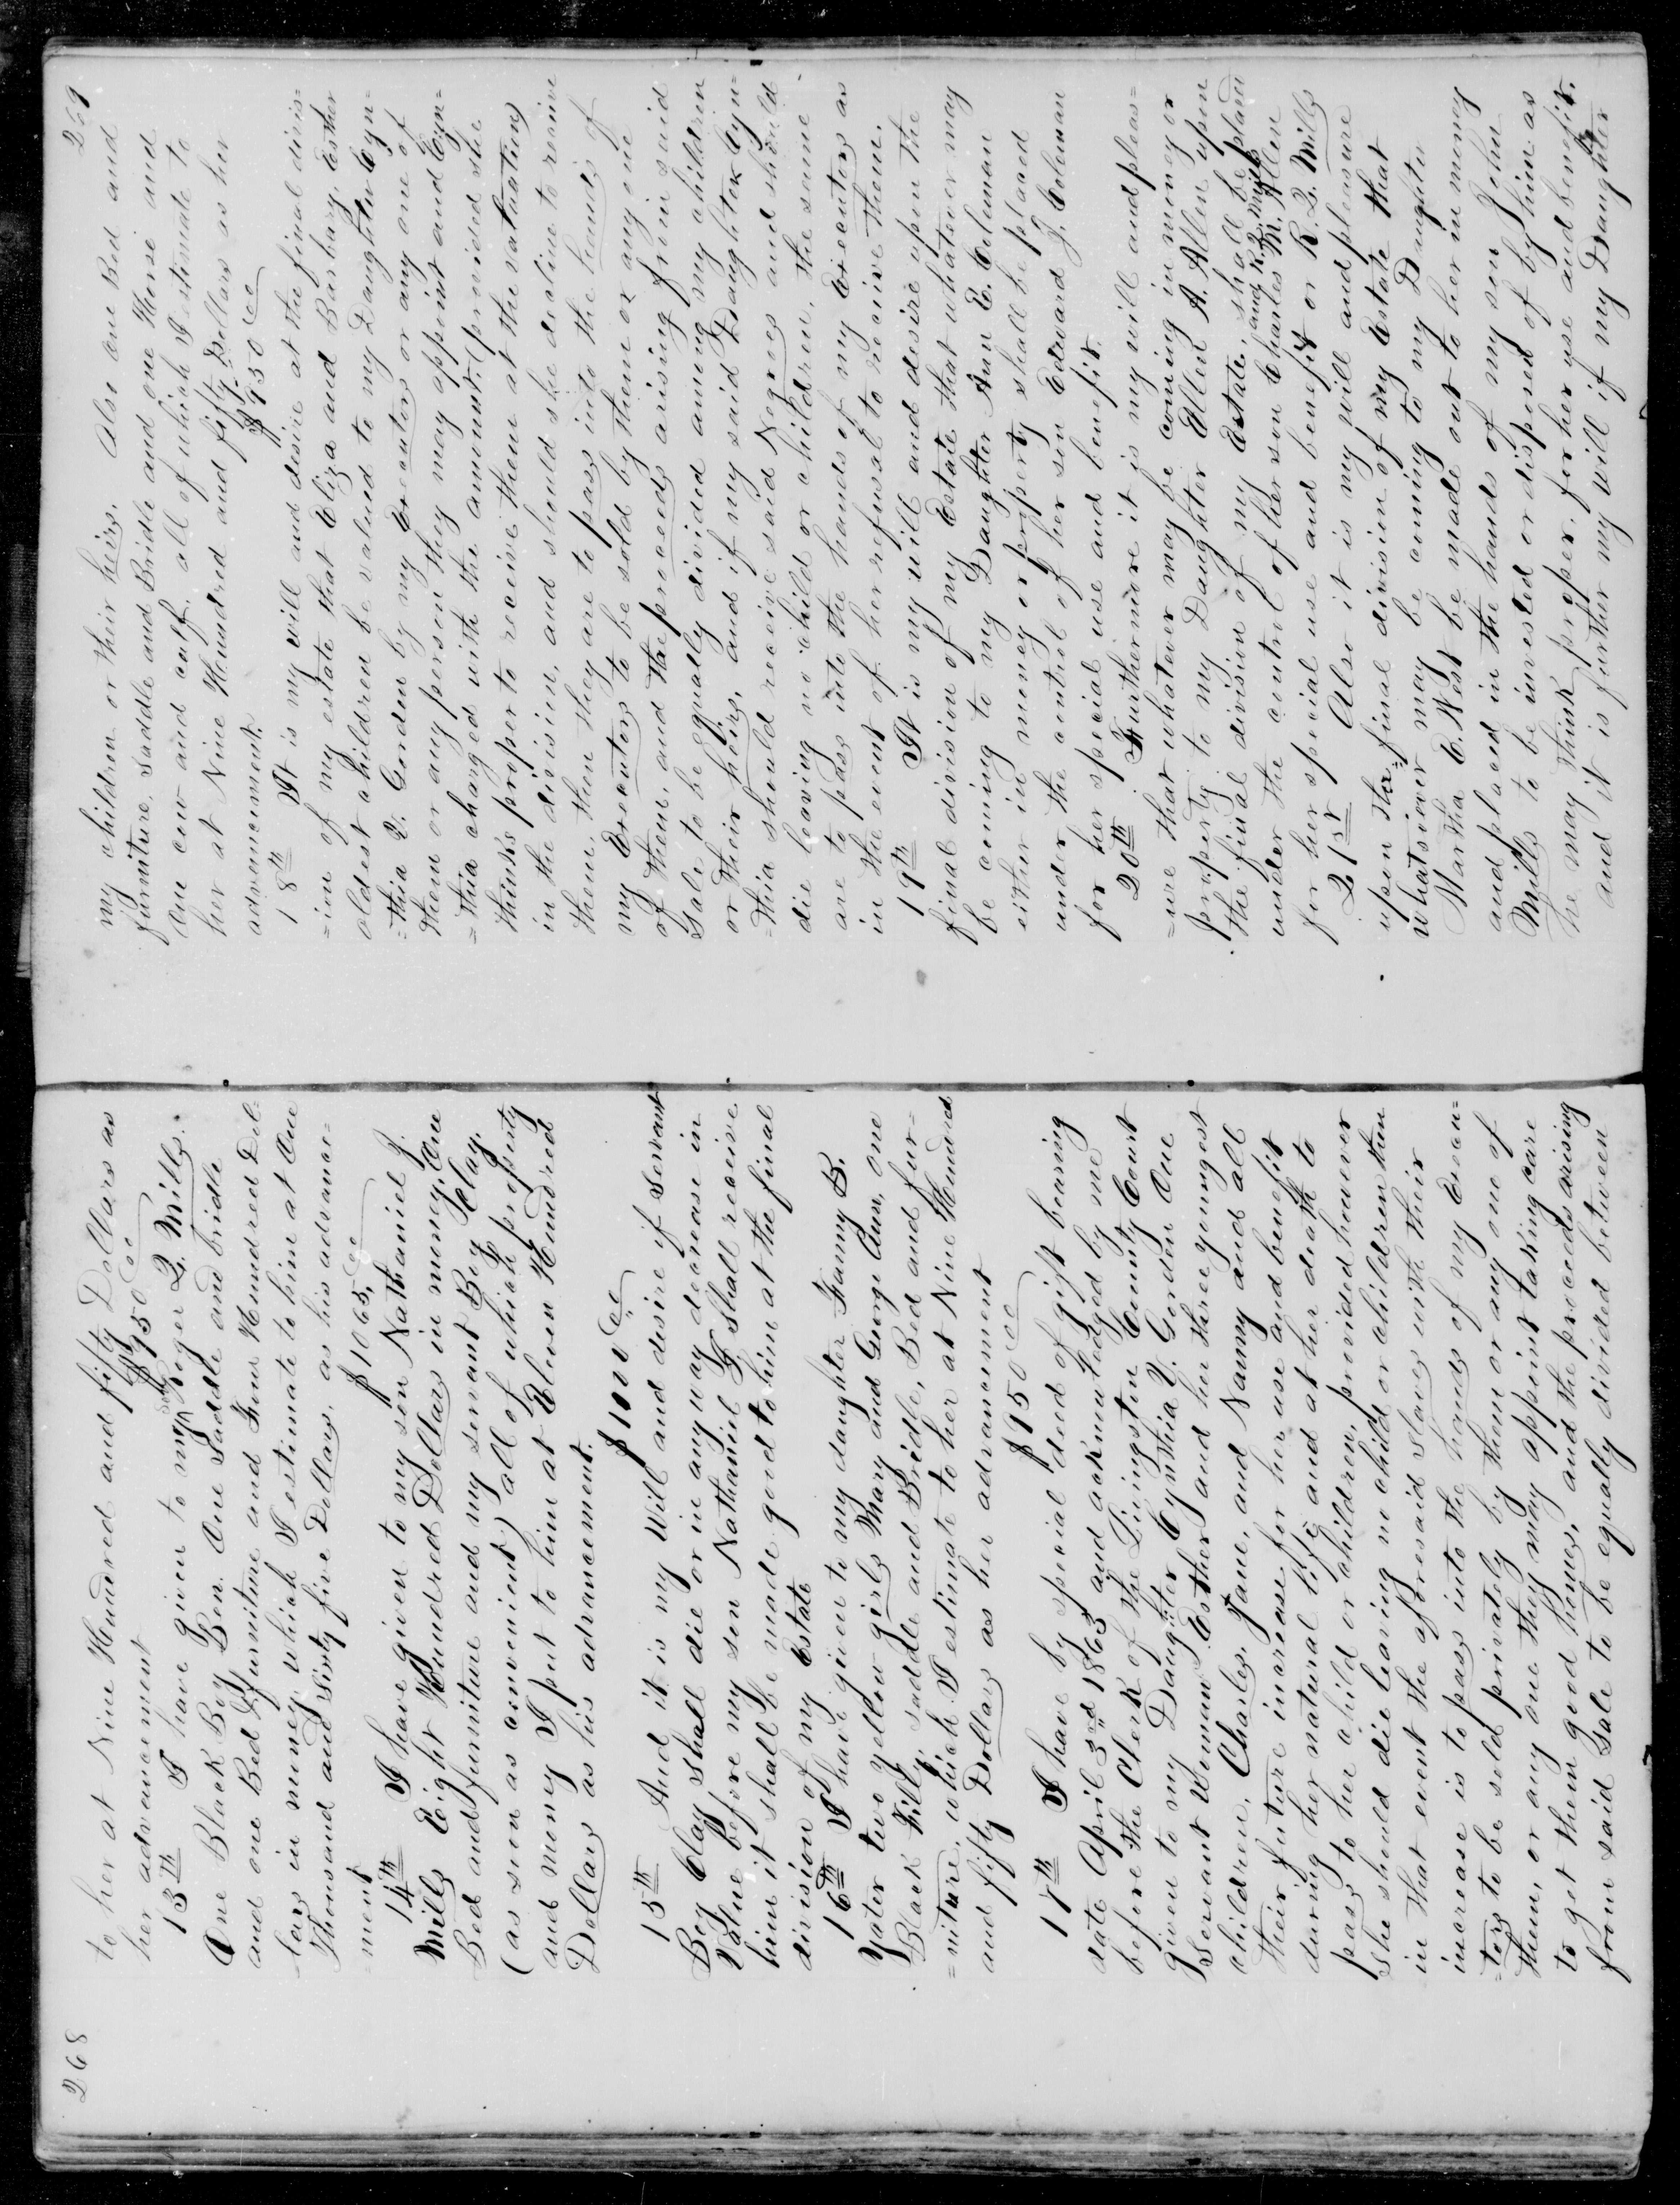 268
to her at Nine Hundred and fifty Dollars as
her advancement $950.00
13th I have given to my son Roger Q. Mills.
One Black Boy Ben. One Saddle and bridle
and one Bed & furniture and Four Hundred Dol-
lars in money, which I estimate to him at One
Thousand and Sixty five Dollars, as his advance=
=ment $1065.00
14th I have given to my son Nathaniel J.
Mills Eight Hundred Dollars in money, One
Bed and furniture and my servant Boy Clay,
(as soon as convenient) all of which property
and money I put to him at Eleven Hundred
Dollars as his advancement.
$1100.00
15th And it is my Will and desire if Servant
Boy Clay shall die or in any way decrease in
Value before my son Nathaniel J. shall receive
him it shall be made good to him at the final
division of my Estate
16th I have given to my daughter Fanny B.
Yater two yellow girls Mary and George Ann, one
Black Filly, saddle and Bridle, Bed and fur=
=niture, which I estimate to her at Nine Hundred
and fifty Dollars as her advancement
$950.00
17th I have by special deed of gift bearing
date April 3rd 1863 and acknowledged by me
before the Clerk of the Livingston County Court
given to my Daughter Cynthia Q. Gordon One
Servant Woman Esther and her three youngest
children, Charles, Jane, and Nanny and all
their future increase for her use and benefit
during her natural life and at her death to
pass to her child or children, provided however
she should die leaving no child or children then
in that event the aforesaid slaves with their
increase is to pass into the hands of my Execu=
=tors to be sold privately by them or any one of
them, or any one they may appoint taking care
to get them good homes, and the proceeds arising
from said Sale to be equally divided between
269
my children or their heirs. Also one Bed and
furniture. Saddle and Bridle and one Horse and
One cow and calf, all of which I estimate to
her at Nine Hundred and fifty Dollars as her
advancement. $950.00
18th It is my will and desire at the final divis=
=ion of my estate that Eliza and Barbary, Esther
oldest children be valued to my Daughter Cyn=
=thia Q. Gordon by my Executors or any one of
them or any person they may appoint and Cyn=
=thia charged with the amount, (provided she
thinks proper to receive them at the valuation)
in the division, and should she decline to receive
them, then they are to pass into the hands of
my Executors to be sold by them or any one
of them, and the proceeds arising from said
Sale to be equally divided among my children
or their heirs, and if my said Daughter Cyn=
=thia should receive said Negroes and should
die leaving no child or children, the same
are to pass into the hands of my Executors as
in the event of her refusal to receive them.
19th It is my will and desire upon the
final division of my Estate that whatever may
be coming to my Daughter Ann E. Coleman
either in money or property shall be placed
under the control of her son Edward J. Coleman
for her special use and benefit.
20th Furthermore it is my will and pleas=
=ure that whatever may be coming in money or
property to my Daughter Ellen A. Allen upon
the final division of my Estate, shall be placed
under the control of her son Charles M. Allen and R. Q. Mills
for her special use and benefit or R. Q. Mills
21st Also it is my will and pleasure
upon the final division of my Estate that
whatsoever may be coming to my Daughter
Martha E. Nest be made out to her in money
and placed in the hands of my son John
Mills to be invested or disposed of by him as
he may think proper, for her use and benefit.
and it is further my will if my Daughter